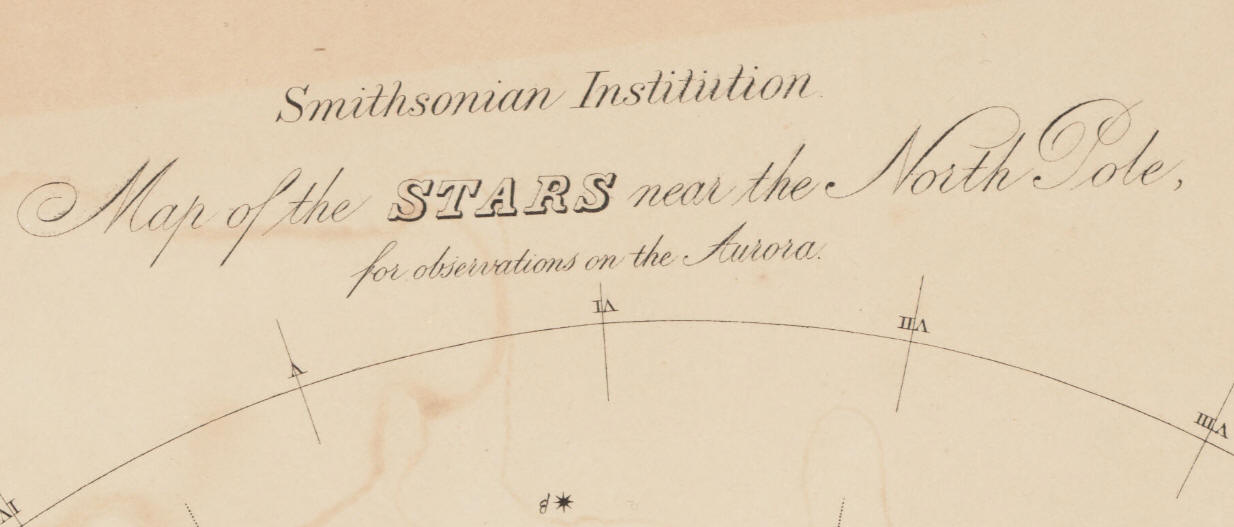 Smithsonian Institution.
Map of the STARS near the North Pole,
for observations on the Aurora.
VI
VII
V
VIII
IV